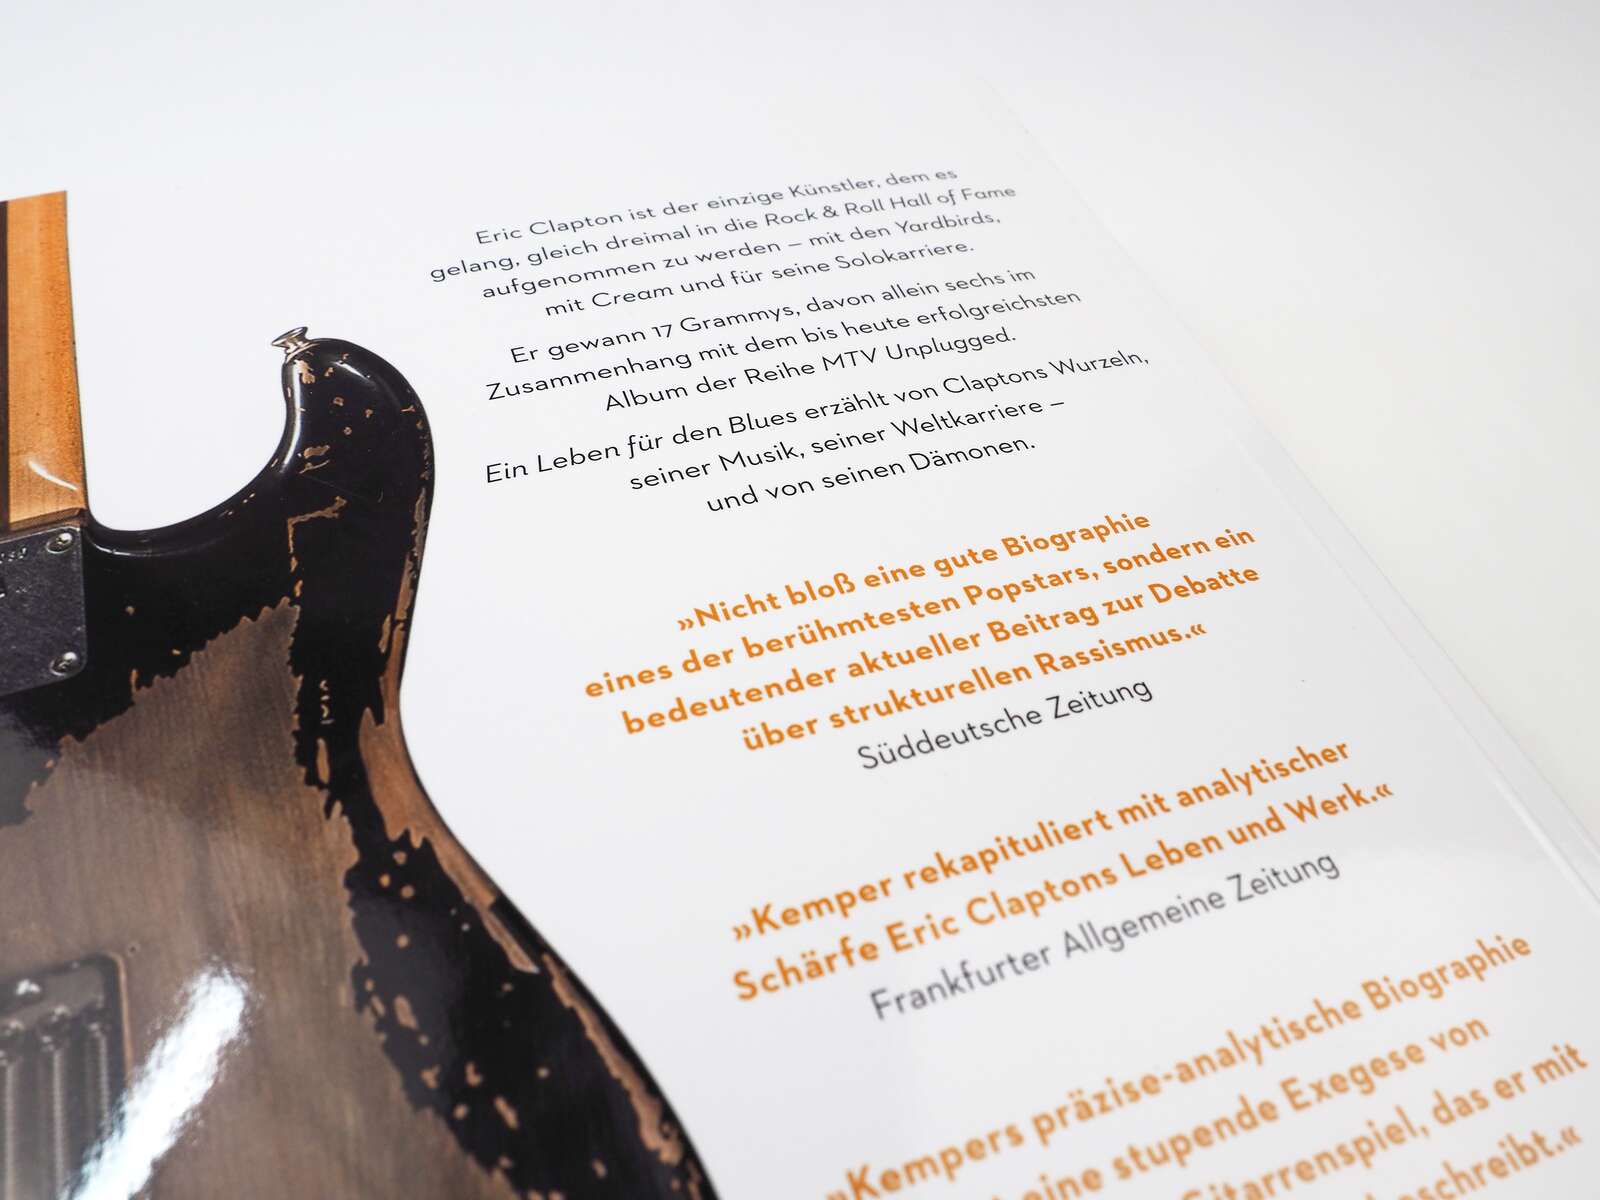 Eric Clapton ist der einzige Künstler, dem es
gelang, gleich dreimal in die Rock & Roll Hall of Fame
aufgenommen zu werden – mit den Yardbirds,
mit Cream und für seine Solokarriere.
Er gewann 17 Grammys, davon allein sechs im
Zusammenhang mit dem bis heute erfolgreichsten
Album der Reihe MTV Unplugged.
Ein Leben für den Blues erzählt von Claptons Wurzeln,
seiner Musik, seiner Weltkarriere –
und von seinen Dämonen.
»Nicht bloß eine gute Biographie
eines der berühmtesten Popstars, sondern ein
bedeutender aktueller Beitrag zur Debatte
über strukturellen Rassismus.«
Süddeutsche Zeitung
»Kemper rekapituliert mit analytischer
Schärfe Eric Claptons Leben und Werk.«
Frankfurter Allgemeine Zeitung
»Kempers präzise-analytische Biographie
eine stupende Exegese von
Gitarrenspiel, das er mit
beschreibt.«